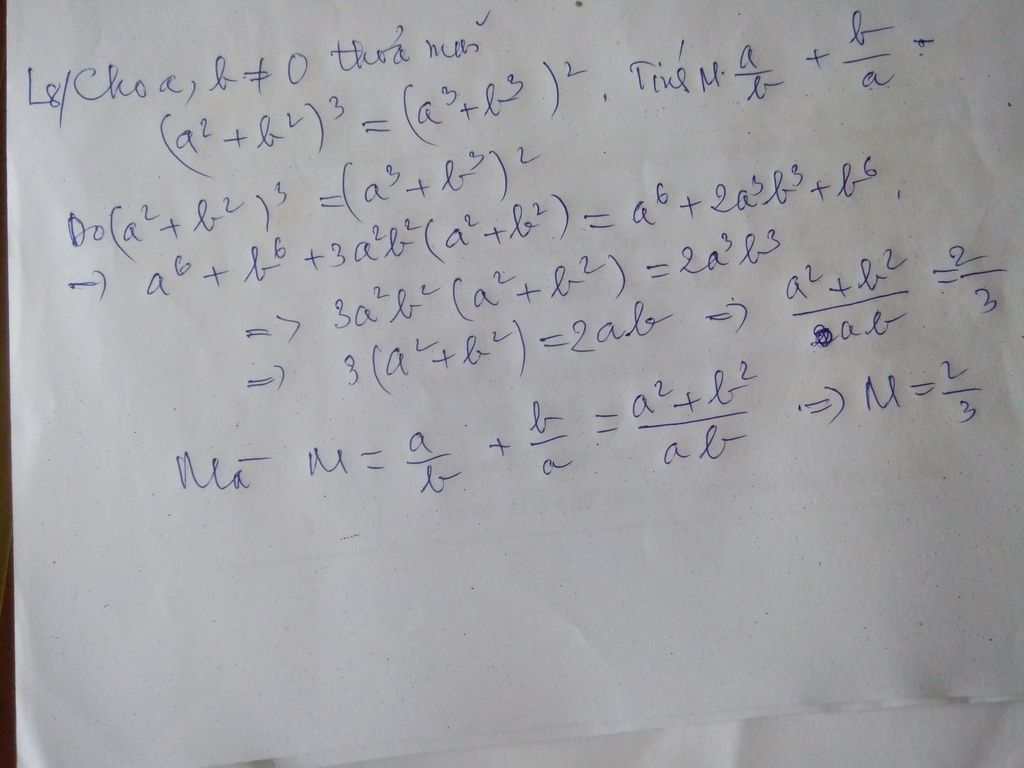 L8/Cho a, b ≠ 0 thoả mãn
(a² + b²)³ = (a³ + b³)². Tính M. a/b + b/a =
Do (a² + b²)³ = (a³ + b³)²
→ a⁶ + b⁶ + 3a²b²(a² + b²) = a⁶ + 2a³b³ + b⁶.
=> 3a²b²(a² + b²) = 2a³b³
=> 3(a² + b²) = 2ab => (a² + b²)/ab = 2/3
Mà M = a/b + b/a = (a² + b²)/ab => M = 2/3